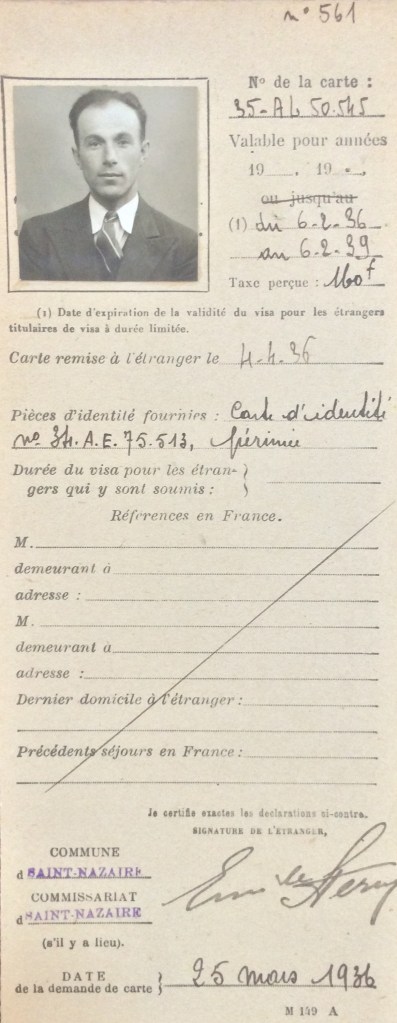 n° 561
N° de la carte :
35-AL 50.545
Valable pour années
19 , 19
ou jusqu'au
(1) du 6-2-36
au 6-2-39
Taxe perçue : 160f
(1) Date d'expiration de la validité du visa pour les étrangers
titulaires de visa à durée limitée.
Carte remise à l'étranger le 4-4-36
Pièces d'identité fournies : Carte d'identité
no. 34.A.E.75.513, périmée
Durée du visa pour les étran- }
gers qui y sont soumis : }
Références en France.
M.
demeurant à
adresse :
M.
demeurant à
adresse :
Dernier domicile à l'étranger :
Précédents séjours en France :
Je certifie exactes les déclarations ci-contre.
SIGNATURE DE L'ÉTRANGER,
COMMUNE
d SAINT-NAZAIRE
COMMISSARIAT
d SAINT-NAZAIRE
(s'il y a lieu).
DATE
de la demande de carte } 25 mars 1936
M 149 A